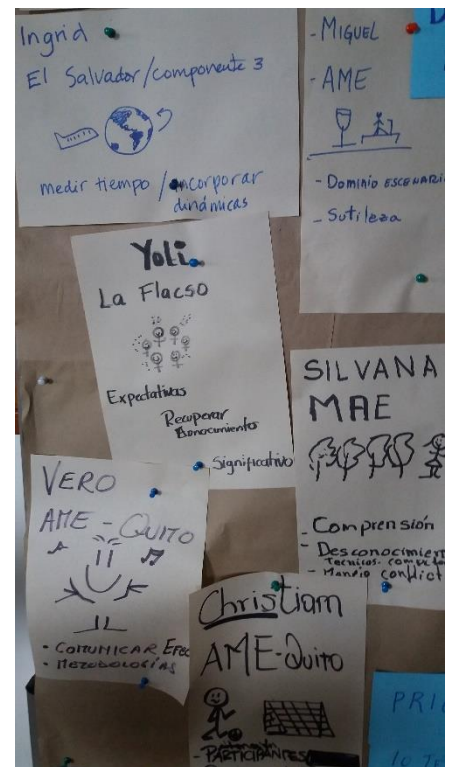 Ingrid
El Salvador/componente 3
medir tiempo / incorporar
dinámicas
- MIGUEL
- AME
- DOMINIO ESCENARI
- Sutileza
Yoli
La Flacso
Expectativas
Recuperar
Conocimiento
Significativo
SILVANA
MAE
- Comprensión
- Desconocimien
- Manejo conflict
VERO
AME - QUITO
- COMUNICAR EFEC
- METODOLOGÍAS
Christiam
AME-Quito
- PARTICIPANTES
PRI